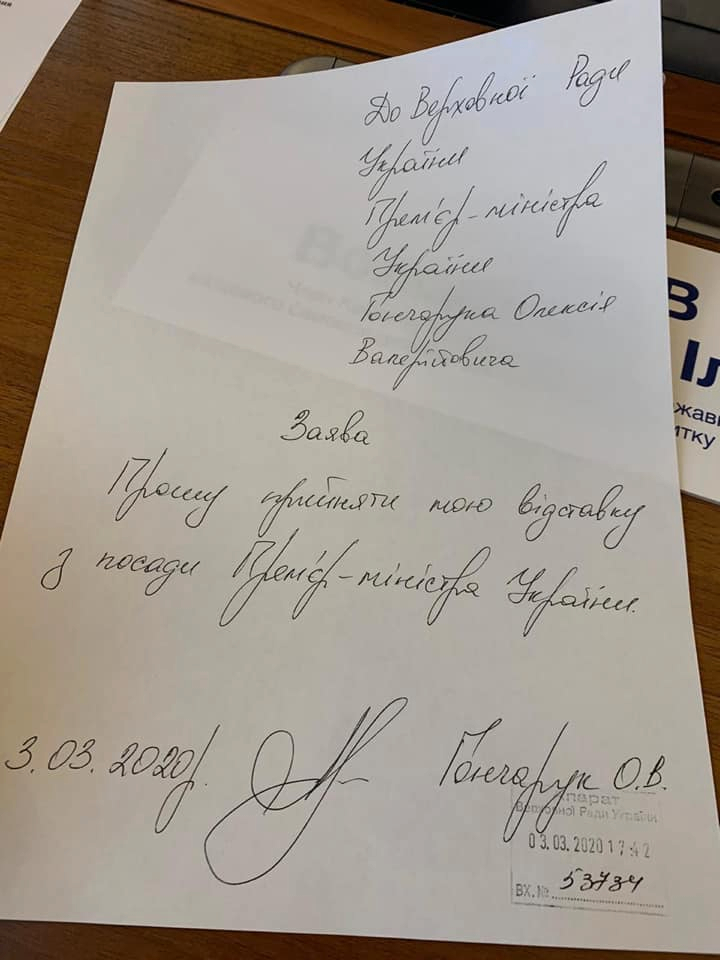 До Верховної Ради
України
Прем'єр-міністра
України
Гончарука Олексія
Валерійовича
Заява
Прошу прийняти мою відставку
з посади Прем'єр-міністра України.
3.03.2020р.
Гончарук О.В.
Апарат
Верховної Ради України
03.03.2020 17:42
ВХ. № 53734
В
Іл
итку